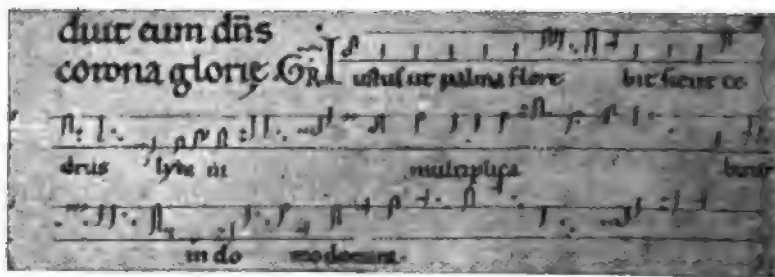 duit eum dñs
corona glorię GR Iustus ut palma flore bit sicut ce
drus lyba ni multiplica bitur
in do mo domini.